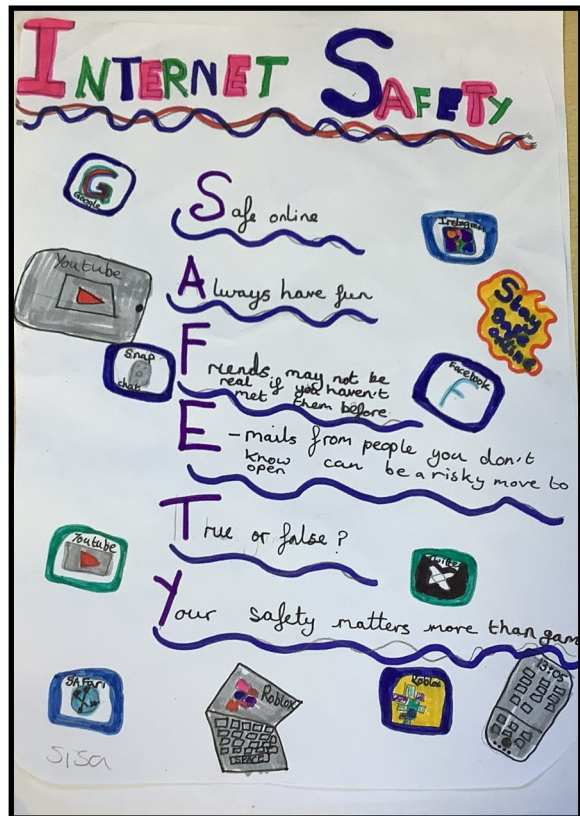 INTERNET SAFETY
Google
Safe online
Instagram
Youtube
Always have fun
Stay
safe
online
Snap
chat
Friends may not be
real if you haven't
met them before
Facebook
F
E-mails from people you don't
know can be a risky move to
open
True or false?
Youtube
Your safety matters more than gam
SAFari
Roblox
SPACE
Roblox
13:05
Sisa